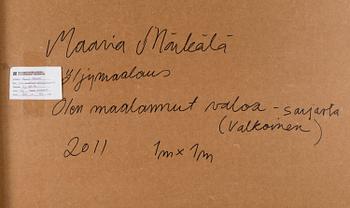 Maaria Märkälä
Öljymaalaus
Olen maalannut valoa - sarjasta
(Valkoinen)
2011 1m x 1m